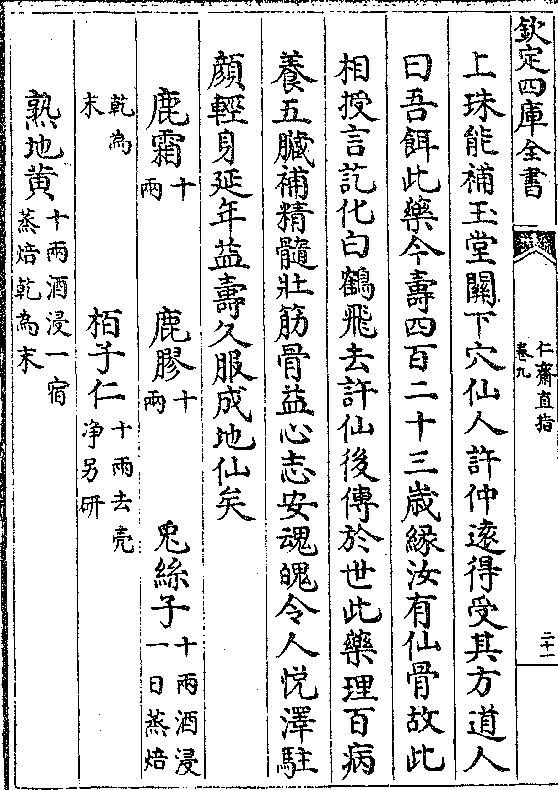 欽定四庫全書
仁齋直指
卷九
二十一
上珠能補玉堂闗下穴仙人許仲逺得受其方道人
曰吾餌此藥今壽四百二十三歲縁汝有仙骨故此
相授言訖化白鶴飛去許仙後傳於世此藥理百病
養五臟補精髓壯筋骨益心志安魂魄令人悦澤駐
顔輕身延年益壽久服成地仙矣
鹿霜十兩 鹿膠十兩 兎絲子十兩酒浸一日蒸焙
乾為末 栢子仁十兩去壳净另研
熟地黄十兩酒浸一宿蒸焙乾為末